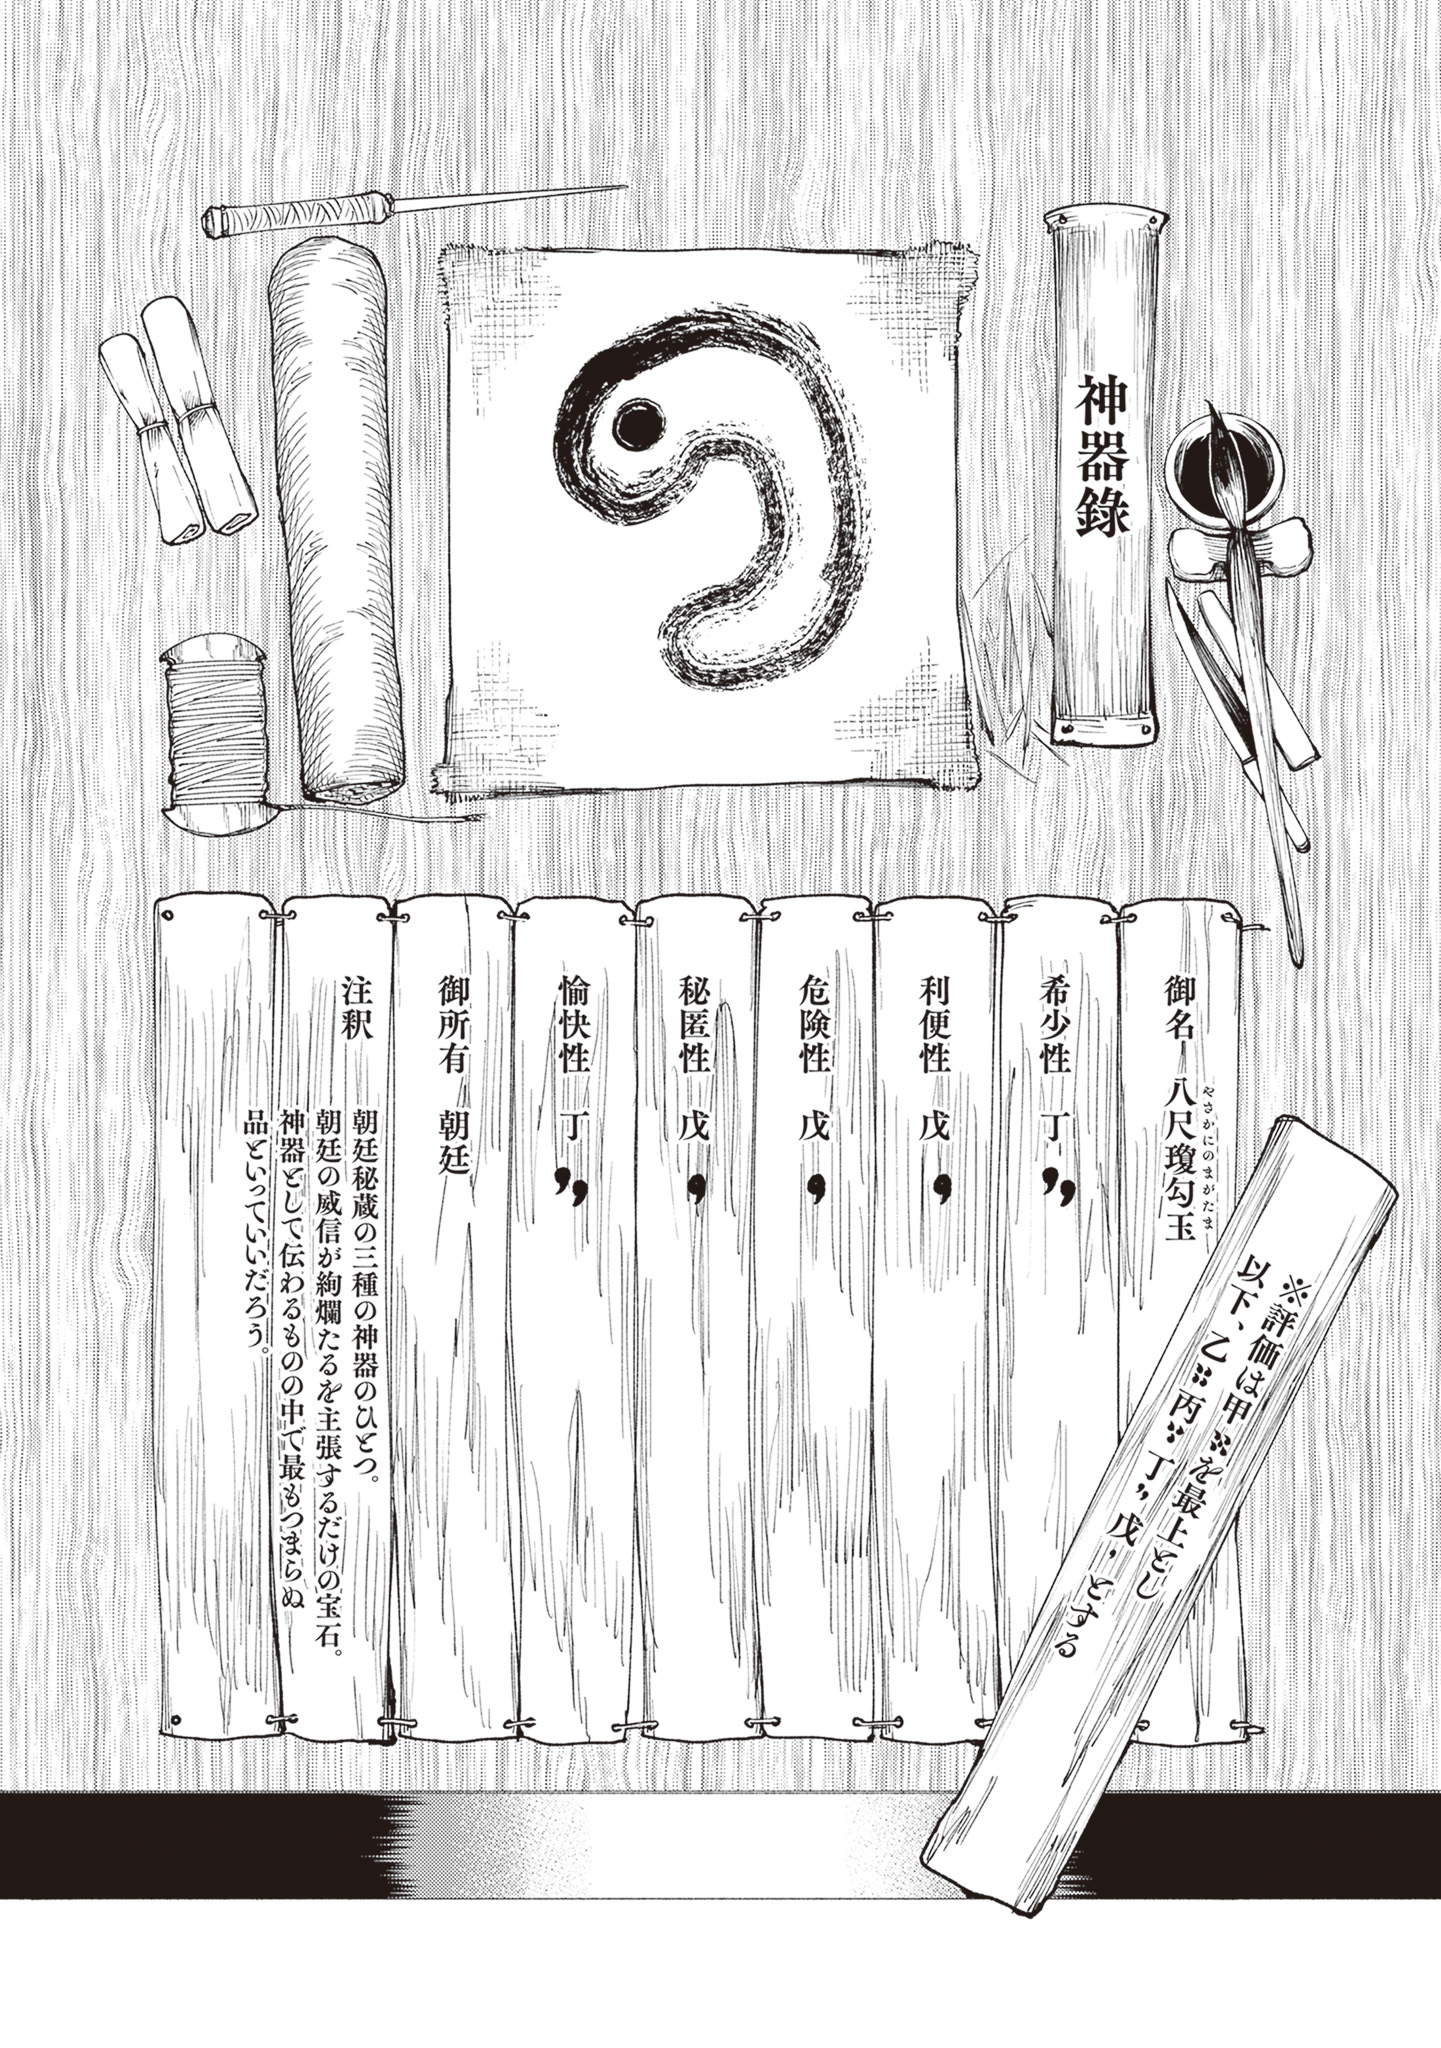 神器錄
御名 八尺瓊勾玉
やさかにのまがたま
希少性 丁
利便性 戊
危険性 戊
秘匿性 戊
愉快性 丁
御所有 朝廷
注釈
朝廷秘蔵の三種の神器のひとつ。
朝廷の威信が絢爛たるを主張するだけの宝石。
神器として伝わるものの中で最もつまらぬ
品といっていいだろう。
※評価は甲を最上とし
以下、乙 丙 丁 戊 とする